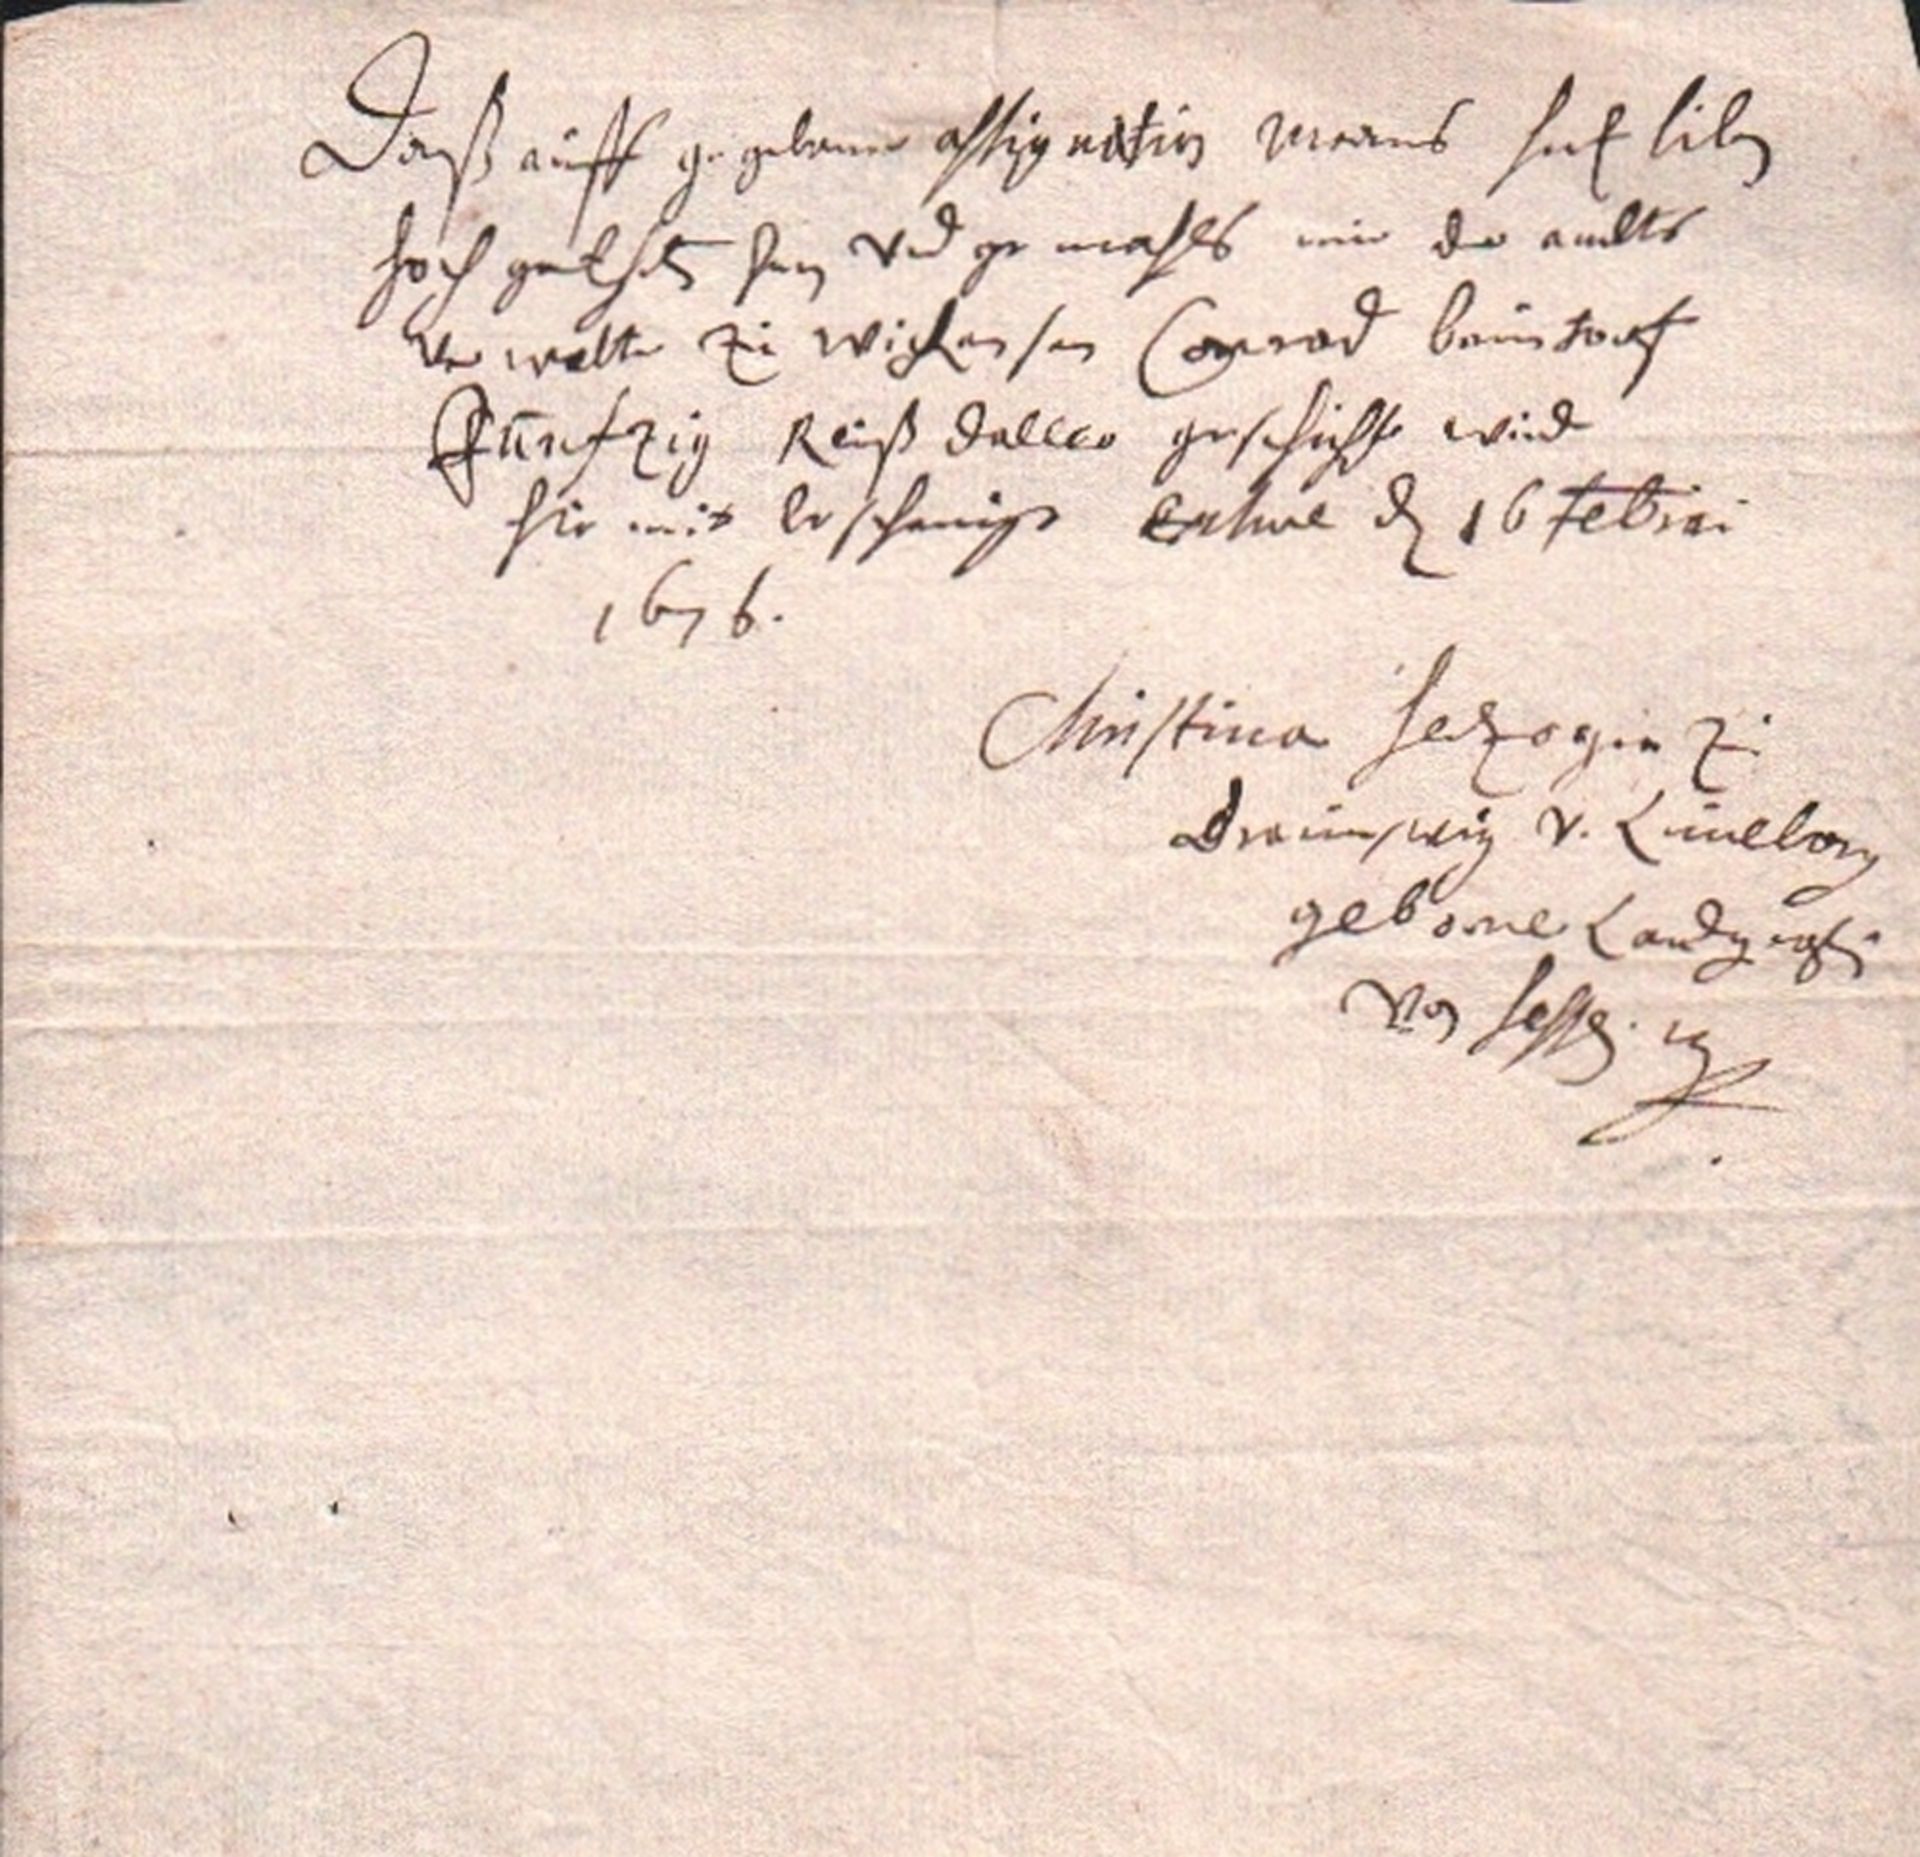 Daß auff gegebene assignation Meines hertz lieben
hoch geehrten hern Vnd gemahls mir der ambts
Ver walter zu Wickensen Conrad
Fünfzig Reiß daller geschickt wird
hir mit bescheinigt den 16 Febriari
1676.
Christina hertzogin zu
Braunswig v. Lüneborg
geborne Landgrafin
Von hessen